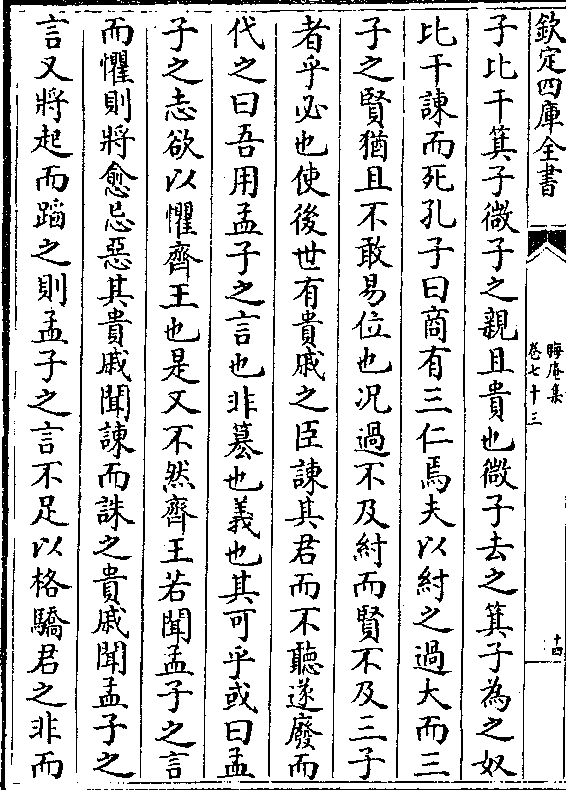 欽定四庫全書
晦庵集
卷七十三
十四
子比干箕子微子之親且貴也微子去之箕子為之奴
比干諫而死孔子曰商有三仁焉夫以紂之過大而三
子之賢猶且不敢易位也况過不及紂而賢不及三子
者乎必也使後世有貴戚之臣諫其君而不聽遂廢而
代之曰吾用孟子之言也非簒也義也其可乎或曰孟
子之志欲以懼齊王也是又不然齊王若聞孟子之言
而懼則將愈忌惡其貴戚聞諫而誅之貴戚聞孟子之
言又將起而蹈之則孟子之言不足以格驕君之非而